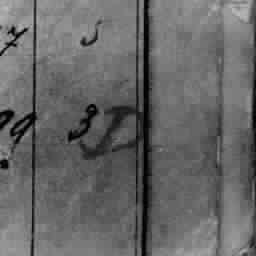 7 5
99 3 D